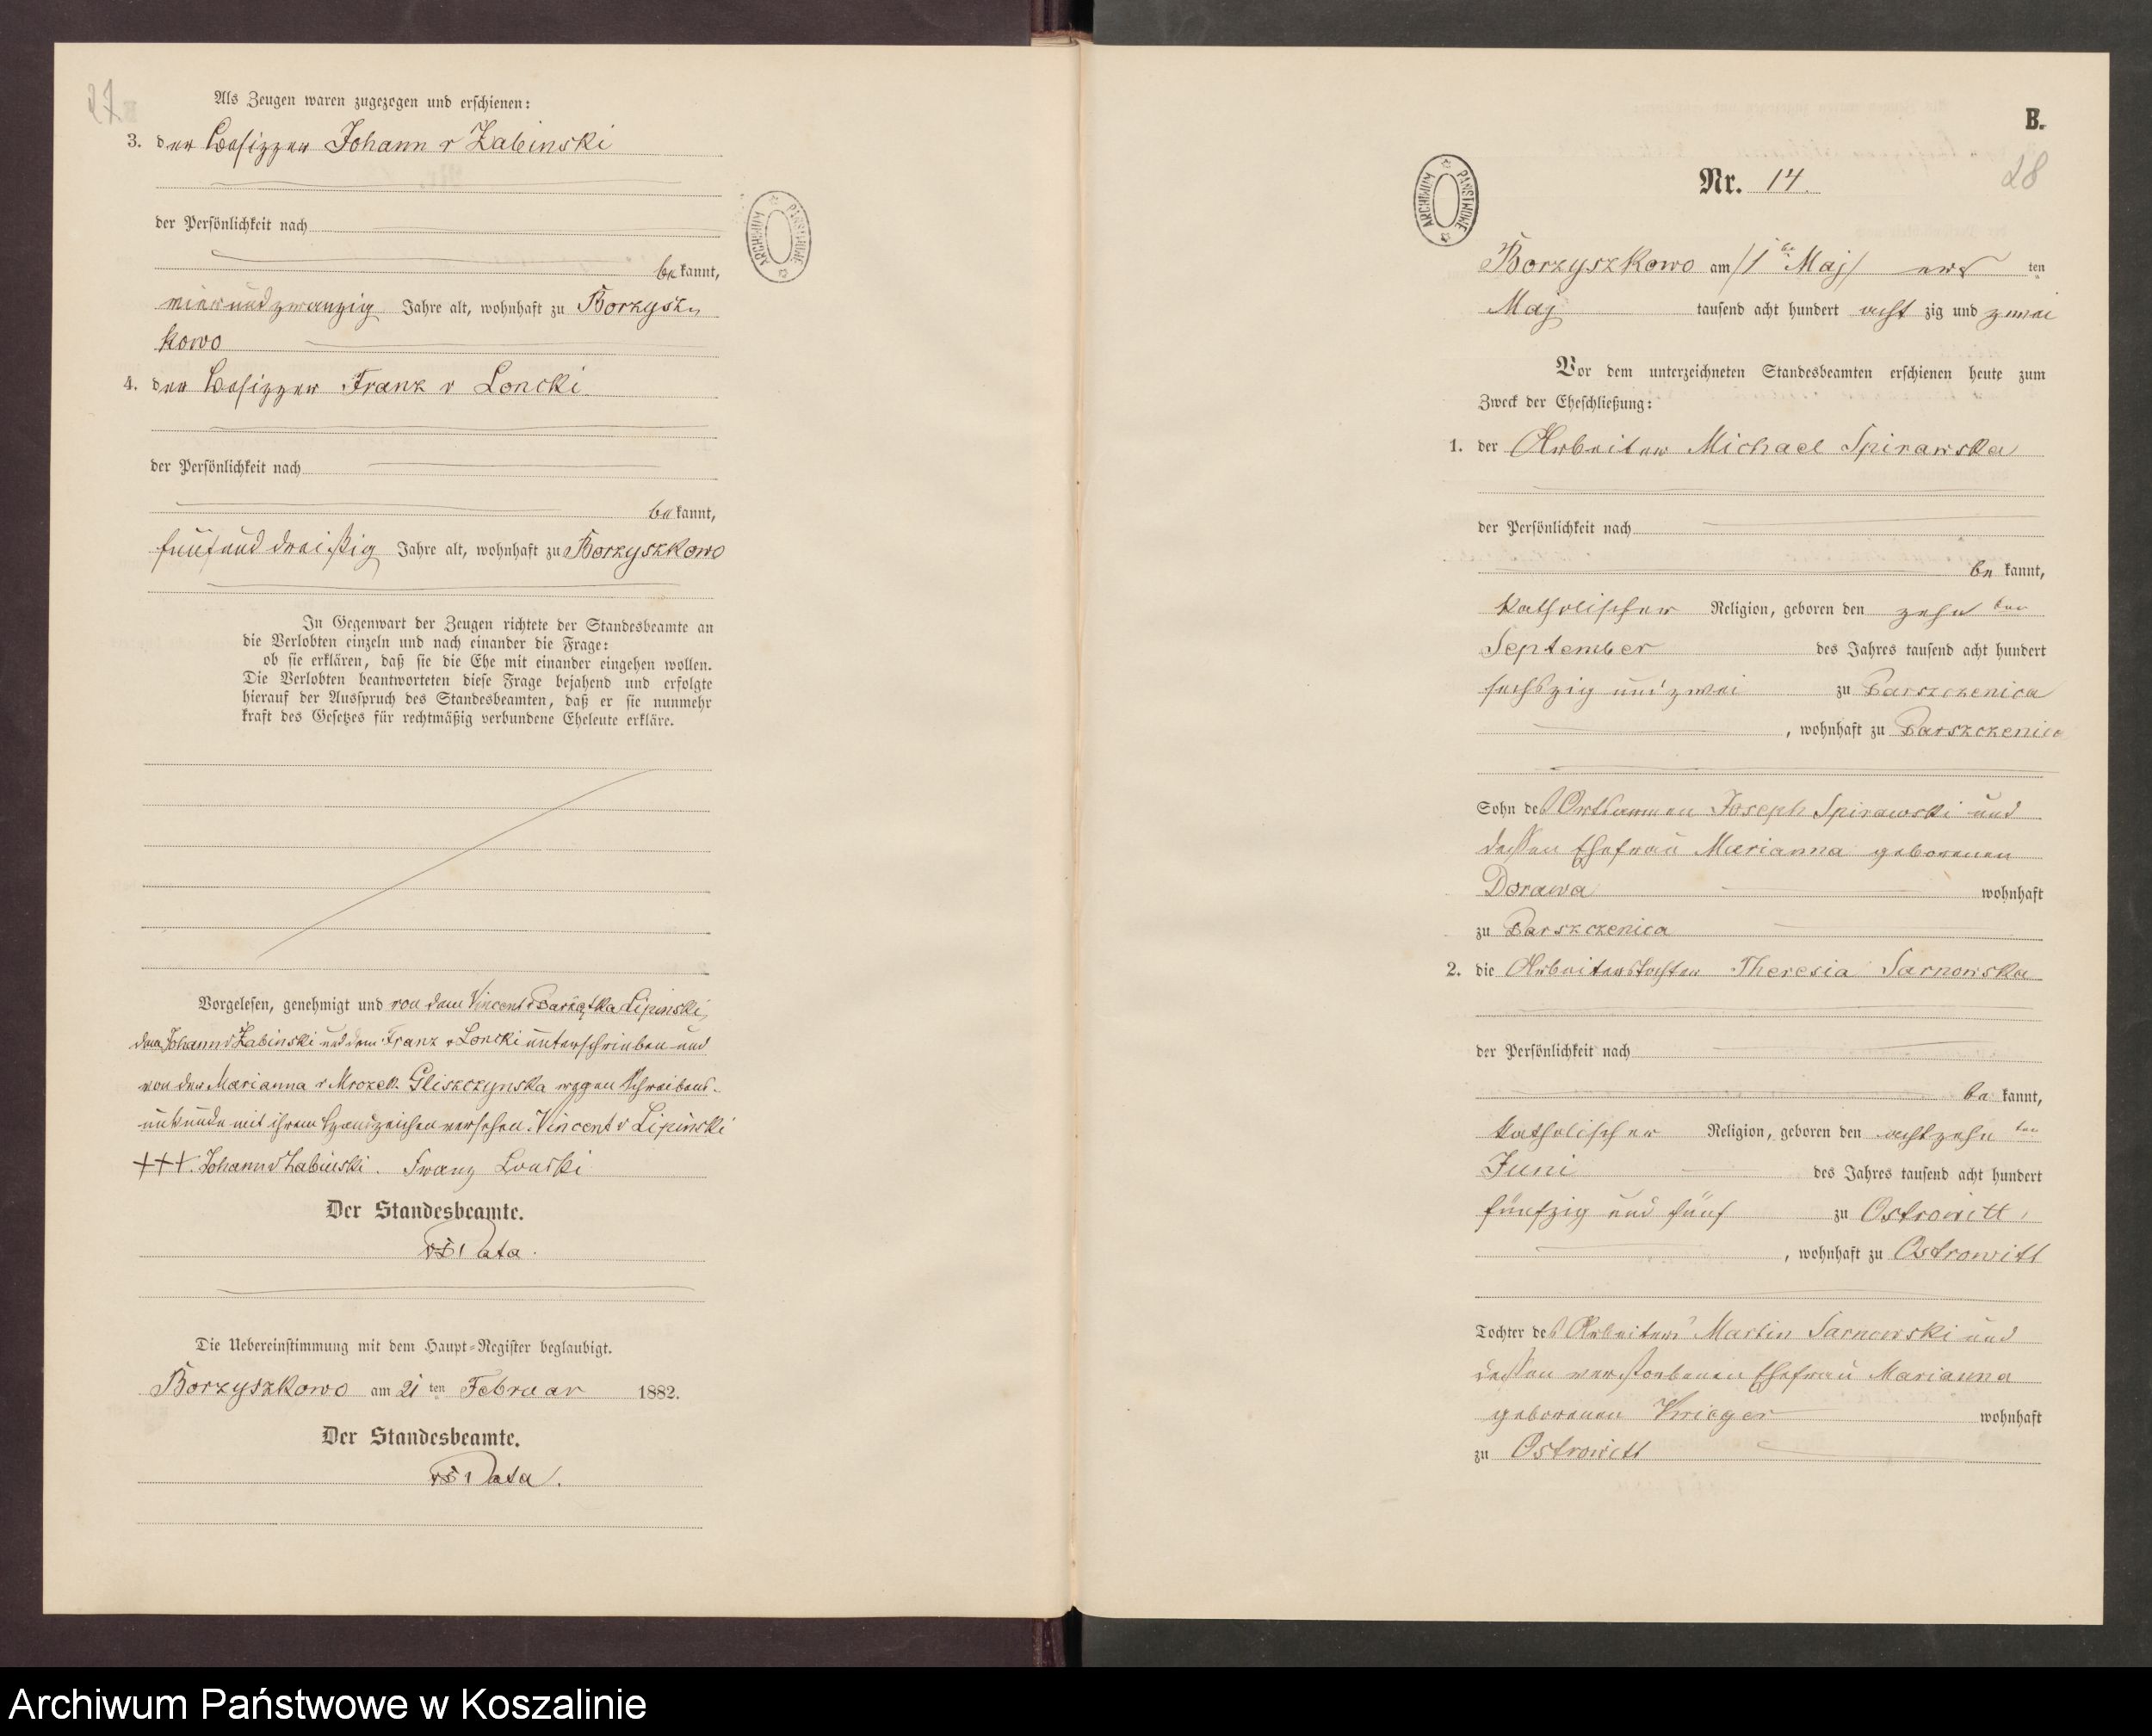 27.
Als Zeugen waren zugezogen und erschienen:
3. der Besitzer Johann v Zabinski
der Persönlichkeit nach
be kannt,
vierundzwanzig Jahre alt, wohnhaft zu Borzysz
kowo
4. der Besitzer Franz v Loncki
der Persönlichkeit nach
be kannt,
fünfund dreißig Jahre alt, wohnhaft zu Borzyszkowo
In Gegenwart der Zeugen richtete der Standesbeamte an
die Verlobten einzeln und nach einander die Frage:
ob sie erklären, daß sie die Ehe mit einander eingehen wollen.
Die Verlobten beantworteten diese Frage bejahend und erfolgte
hierauf der Ausspruch des Standesbeamten, daß er sie nunmehr
kraft des Gesetzes für rechtmäßig verbundene Eheleute erkläre.
Vorgelesen, genehmigt und von dem Vincent v Lipinski,
dem Johann v Zabinski und dem Franz v Loncki unterschrieben und
von der Marianna v Mrozek Gliszczynska wegen Schreibens-
unkunde mit ihrem Handzeichen versehen. Vincent v Lipinski
+++. Johann v Zabinski. Franz Lonski
Der Standesbeamte.
Die Uebereinstimmung mit dem Haupt-Register beglaubigt.
Borzyszkowo am 21 ten Februar 1882.
Der Standesbeamte.
B.
28
Nr. 14.
ARCHIWUM PAŃSTWOWE
ARCHIWUM PAŃSTWOWE
Borzyszkowo am /1 ten Maj/ ers ten
Maj tausend acht hundert acht zig und zwei
Vor dem unterzeichneten Standesbeamten erschienen heute zum
Zweck der Eheschließung:
1. der Arbeiter Michael Spirawska
der Persönlichkeit nach
be kannt,
katholischer Religion, geboren den zehn ten
September des Jahres tausend acht hundert
sechszig und zwei zu Barszczenica
, wohnhaft zu Barszczenica
Sohn des Ortsarmen Joseph Spirawski und
dessen Ehefrau Marianna geborenen
Dorawa wohnhaft
zu Barszczenica
2. die Arbeiterstochter Theresia Sarnowska
der Persönlichkeit nach
be kannt,
katholischer Religion, geboren den achtzehn ten
Juni des Jahres tausend acht hundert
fünfzig und fünf zu Ostrowitt,
, wohnhaft zu Ostrowitt
Tochter des Arbeiters Martin Sarnowski und
dessen verstorbenen Ehefrau Marianna
geborenen Krieger wohnhaft
zu Ostrowitt
Archiwum Państwowe w Koszalinie